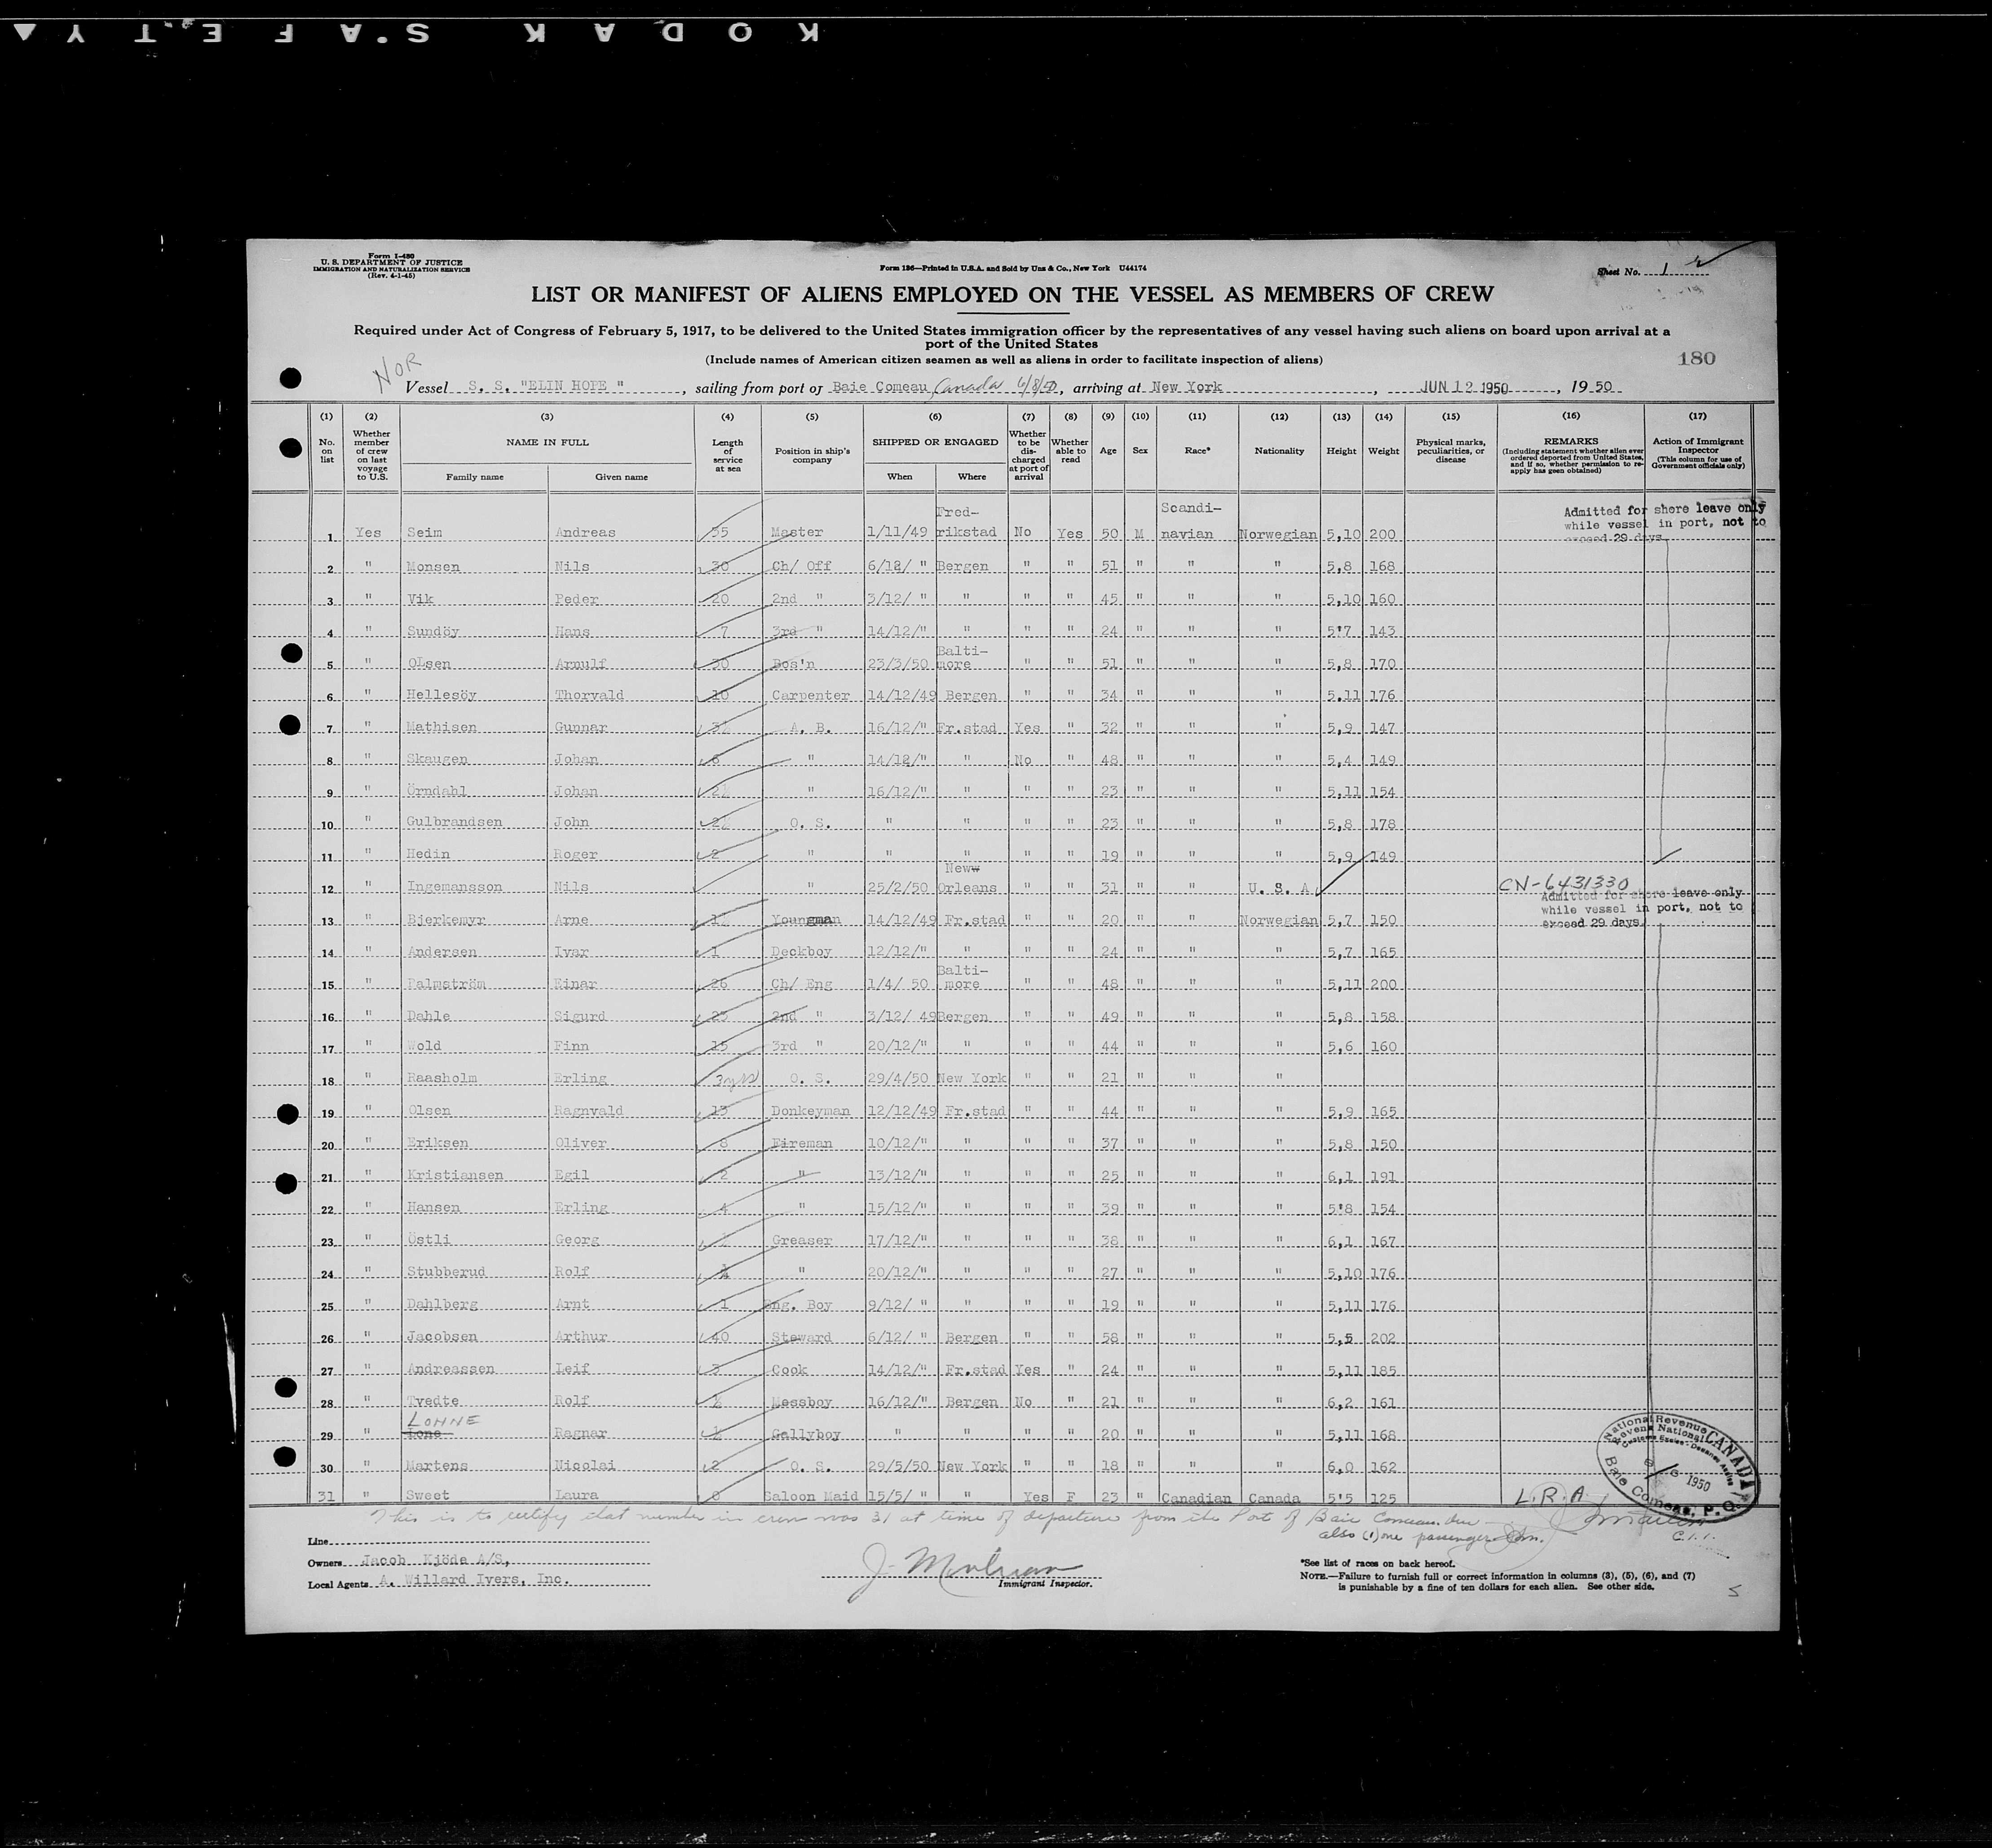 KODAK SAFETY
Form I-480
U. S. DEPARTMENT OF JUSTICE
IMMIGRATION AND NATURALIZATION SERVICE
(Rev. 4-1-45)
Form 136—Printed in U.S.A. and Sold by Unz & Co., New York U44174
Sheet No. 1
LIST OR MANIFEST OF ALIENS EMPLOYED ON THE VESSEL AS MEMBERS OF CREW
Required under Act of Congress of February 5, 1917, to be delivered to the United States immigration officer by the representatives of any vessel having such aliens on board upon arrival at a
port of the United States
(Include names of American citizen seamen as well as aliens in order to facilitate inspection of aliens)
180
NOR
Vessel S. S. "ELIN HOPE ", sailing from port of Baie Comeau, Canada 6/8/50, arriving at New York, JUN 12 1950, 19 50
(1) (2) (3) (4) (5) (6) (7) (8) (9) (10) (11) (12) (13) (14) (15) (16) (17)
No. on list
Whether member of crew on last voyage to U.S.
NAME IN FULL
Family name
Given name
Length of service at sea
Position in ship's company
SHIPPED OR ENGAGED
When
Where
Whether to be discharged at port of arrival
Whether able to read
Age
Sex
Race*
Nationality
Height
Weight
Physical marks, peculiarities, or disease
REMARKS
(Including statement whether alien ever ordered deported from United States, and if so, whether permission to reapply has been obtained)
Action of Immigrant Inspector
(This column for use of Government officials only)
1 Yes Seim Andreas 35 Master 1/11/49 Fred-rikstad No Yes 50 M Scandi-navian Norwegian 5,10 200
Admitted for shore leave only
while vessel in port, not to
exceed 29 days
2 " Monsen Nils 30 Ch/ Off 6/12/ " Bergen " " 51 " " " 5,8 168
3 " Vik Peder 20 2nd " 3/12/ " " " " 45 " " " 5,10 160
4 " Sundöy Hans 7 3rd " 14/12/" " " " 24 " " " 5'7 143
5 " OLsen Arnulf 30 Bos'n 23/3/50 Balti-more " " 51 " " " 5,8 170
6 " Hellesöy Thorvald 10 Carpenter 14/12/49 Bergen " " 34 " " " 5.11 176
7 " Mathisen Gunnar A. B. 16/12/" Fr.stad Yes " 32 " " " 5,9 147
8 " Skaugen Johan 6 " 14/12/" " No " 48 " " " 5,4 149
9 " Örndahl Johan " 16/12/" " " " 23 " " " 5,11 154
10 " Gulbrandsen John O. S. " " " " 23 " " " 5,8 178
11 " Hedin Roger 2 " " " " " 19 " " " 5,9 149
12 " Ingemansson Nils " 25/2/50 Neww Orleans " " 31 " " U. S. A. CN-6431330
Admitted for shore leave only
while vessel in port, not to
exceed 29 days
13 " Bjerkemyr Arne Youngman 14/12/49 Fr.stad " " 20 " " Norwegian 5,7 150
14 " Andersen Ivar 1 Deckboy 12/12/" " " " 24 " " " 5,7 165
15 " Palmström Einar 26 Ch/ Eng 1/4/ 50 Balti-more " " 48 " " " 5,11 200
16 " Dahle Sigurd 23 2nd " 3/12/ 49 Bergen " " 49 " " " 5,8 158
17 " Wold Finn 15 3rd " 20/12/" " " " 44 " " " 5,6 160
18 " Raasholm Erling O. S. 29/4/50 New York " " 21 " " "
19 " Olsen Ragnvald 13 Donkeyman 12/12/49 Fr.stad " " 44 " " " 5,9 165
20 " Eriksen Oliver 8 Fireman 10/12/" " " " 37 " " " 5,8 150
21 " Kristiansen Egil 2 " 13/12/" " " " 25 " " " 6,1 191
22 " Hansen Erling 4 " 15/12/" " " " 39 " " " 5'8 154
23 " Östli Georg Greaser 17/12/" " " " 38 " " " 6,1 167
24 " Stubberud Rolf " 20/12/" " " " 27 " " " 5,10 176
25 " Dahlberg Arnt 1 Eng. Boy 9/12/ " " " " 19 " " " 5,11 176
26 " Jacobsen Arthur 40 Steward 6/12/ " Bergen " " 58 " " " 5,5 202
27 " Andreassen Leif 3 Cook 14/12/" Fr.stad Yes " 24 " " " 5,11 185
28 " Tvedte Rolf ½ Messboy 16/12/" Bergen No " 21 " " " 6,2 161
LOHNE
29 " Lone Ragnar ½ Gallyboy " " " " 20 " " " 5,11 168
30 " Martens Nicolai 2 O. S. 29/5/50 New York " " 18 " " " 6,0 162
31 " Sweet Laura 0 Saloon Maid 15/5/ " " Yes F 23 " Canadian Canada 5'5 125 L.R.A.
National Revenue
Revenu National
CANADA
1950
Baie Comeau, P.Q.
This is to certify that number in crew was 31 at time of departure from the Port of Baie Comeau, Que
also (1) one passenger
C.I.I.
Line
Owners Jacob Kjöde A/S,
Local Agents A. Willard Ivers, Inc.
Immigrant Inspector.
*See list of races on back hereof.
NOTE.—Failure to furnish full or correct information in columns (3), (5), (6), and (7)
is punishable by a fine of ten dollars for each alien. See other side.